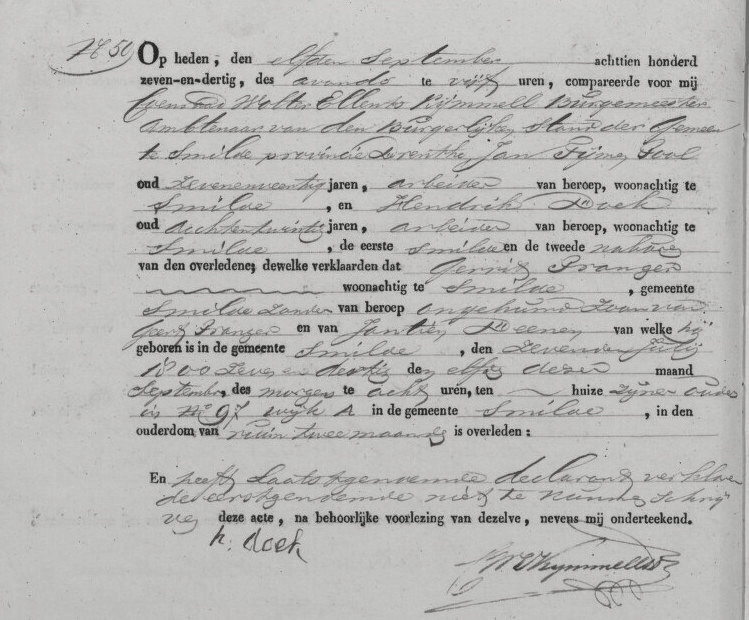 No 50
Op heden, den elfden September achttien honderd
zeven-en-dertig, des avonds te vijf uren, compareerde voor mij
Coenraad Wolter Ellents Kymmell Burgemeester
Ambtenaar van den Burgerlijken Stand der Gemeen
te Smilde provincie Drenthe, Jan Pool
oud jaren, arbeider van beroep, woonachtig te
Smilde, en Hendrik Doek
oud achtentwintig jaren, arbeider van beroep, woonachtig te
Smilde, de eerste en de tweede nabuur
van den overledene; dewelke verklaarden dat Gerrit Pranger
woonachtig te Smilde, gemeente
Smilde zonder van beroep ongehuwd zoon van
Geert Pranger en van Jantien Deenen van welke hij
geboren is in de gemeente Smilde, den zevenden Julij
1800 zeven en dertig den elfden dezer maand
September, des morgens te acht uren, ten huize zijner ouders
in No 97 wijk A in de gemeente Smilde, in den
ouderdom van ruim twee maanden is overleden:
En heeft laatstgenoemde declarant verklaar
de eerstgenoemde niet te kunnen schrij
ven deze acte, na behoorlijke voorlezing van dezelve, nevens mij onderteekend.
h. doek
Kymmell